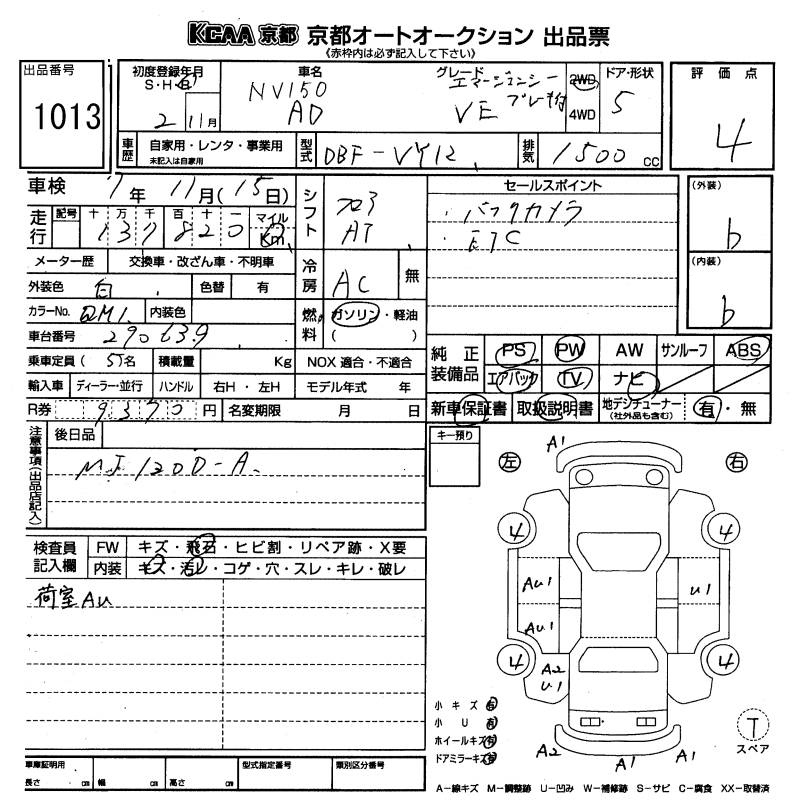 KCAA 京都 京都オートオークション 出品票
《赤枠内は必ず記入して下さい》
出品番号
1013
初度登録年月
S・H・R
2 11月
車名
NV150
AD
グレード
エマージェンシー
ブレーキ付
VE
2WD
4WD
ドア・形状
5
評価点
4
車歴
自家用・レンタ・事業用
未記入は自家用
型式
DBF-VY12
排気
1500 CC
車検 7年 11月(15日)
走行
記号 十 万 千 百 十 一 マイル
137820 Km
シフト
フロア
AT
セールスポイント
・バックカメラ
・ETC
(外装)
b
(内装)
b
メーター歴 交換車・改ざん車・不明車
冷房
AC 無
外装色 白 色替 有
カラーNo. QM1 内装色
燃料
ガソリン・軽油
( )
車台番号 290639
乗車定員 (5)名 積載量 Kg NOX 適合・不適合
輸入車 ディーラー・並行 ハンドル 右H・左H モデル年式 年
R券 9370円 名変期限 月 日
純正装備品
PS PW AW サンルーフ ABS
エアバック TV ナビ
新車保証書 取扱説明書 地デジチューナー
(社外品も含む)
有・無
注意事項(出品店記入)
後日品
MJ120D-A
キー預り
左
右
検査員
記入欄
FW キズ・飛石・ヒビ割・リペア跡・X要
内装 キズ・汚レ・コゲ・穴・スレ・キレ・破レ
荷室AU
A1
4 4
AU1 U1
AU1
4 4
A2
U1
A2 A1 A1
小キズ 有
小U 有
ホイールキズ 有
ドアミラーキズ 有
T
スペア
車庫証明用
長さ cm 幅 cm 高さ cm
型式指定番号
類別区分番号
A―線キズ M―調整跡 U―凹み W―補修跡 S―サビ C―腐食 XX―取替済